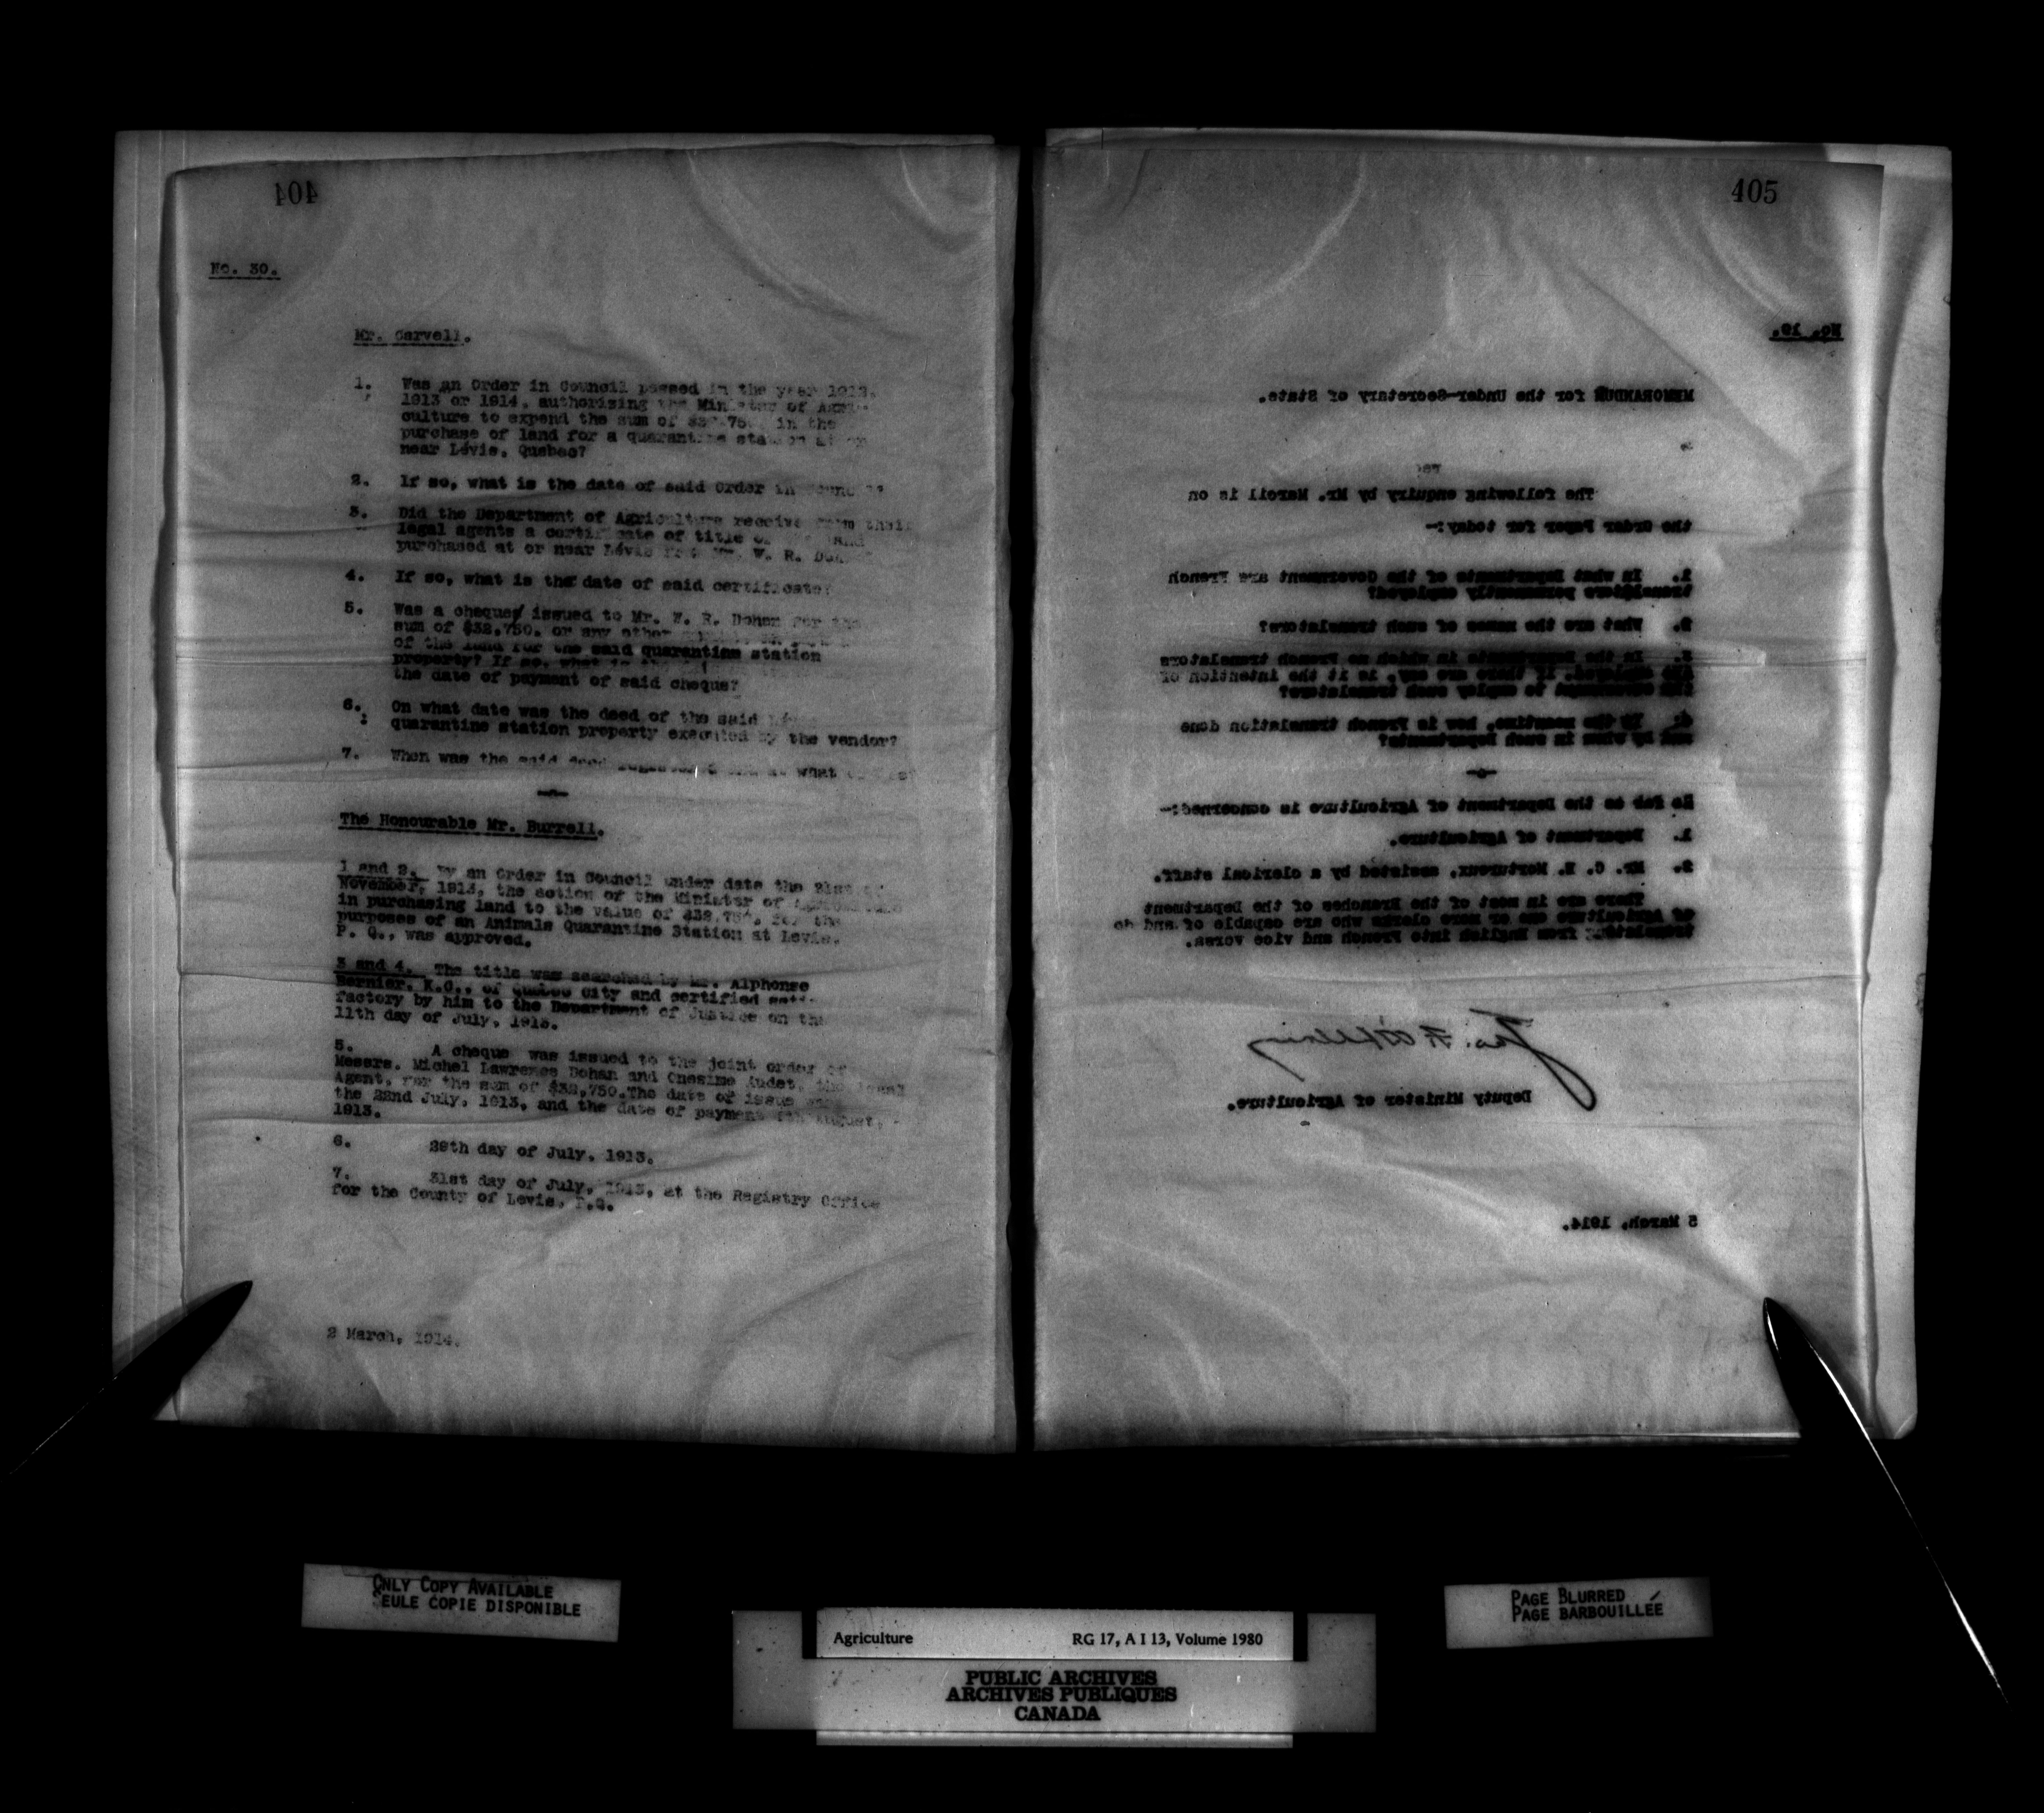 404
No. 30.
Mr. Carvell.
1. Was an Order in Council passed in the year 1912,
1913 or 1914, authorizing the Minister of Agri-
culture to expend the sum of $32,750. in the
purchase of land for a quarantine station at or
near Lévis, Quebec?
2. If so, what is the date of said Order in Council?
3. Did the Department of Agriculture receive from their
legal agents a certificate of title of the land
purchased at or near Lévis from W. R.
4. If so, what is the date of said certificate?
5. Was a cheque issued to Mr. W. R. Dohan for the
sum of $32,750. or any other
of the land for the said quarantine station
property? If so, what is the
the date of payment of said cheque?
6. On what date was the deed of the said Lévis
quarantine station property executed by the vendor?
7. When was the said deed registered and at what
-o-
The Honourable Mr. Burrell.
1 and 2. By an Order in Council under date the 21st of
November, 1913, the action of the Minister of Agriculture
in purchasing land to the value of $32,750. for the
purposes of an Animals Quarantine Station at Levis,
P. Q., was approved.
3 and 4. The title was searched by Mr. Alphonse
Bernier, K.C., of Quebec City and certified satis-
factory by him to the Department of Justice on the
11th day of July, 1913.
5. A cheque was issued to the joint order of
Messrs. Michel Lawrence Dohan and Onesime Audet, the legal
Agent, for the sum of $32,750. The date of issue was
the 22nd July, 1913, and the date of payment August,
1913.
6. 29th day of July, 1913.
7. 31st day of July, 1913, at the Registry Office
for the County of Levis, P.Q.
2 March, 1914.
405
No. 19.
MEMORANDUM for the Under-Secretary of State.
The following enquiry by Mr. Marcil is on
the Order Paper for today:-
1. In what Departments of the Government are French
translators permanently employed?
2. What are the names of such translators?
3. In the Departments in which no French translators
are employed, if there are any, is it the intention of
the Government to employ such translators?
4. In the meantime, how is French translation done
and by whom in such Departments?
-o-
So far as the Department of Agriculture is concerned:-
1. Department of Agriculture.
2. Mr. C. E. Mortureux, assisted by a clerical staff.
There are in most of the Branches of the Department
of Agriculture one or more clerks who are capable of and do
translate from English into French and vice versa.
Deputy Minister of Agriculture.
5 March, 1914.
ONLY COPY AVAILABLE
SEULE COPIE DISPONIBLE
PAGE BLURRED
PAGE BARBOUILLÉE
Agriculture RG 17, A I 13, Volume 1980
PUBLIC ARCHIVES
ARCHIVES PUBLIQUES
CANADA